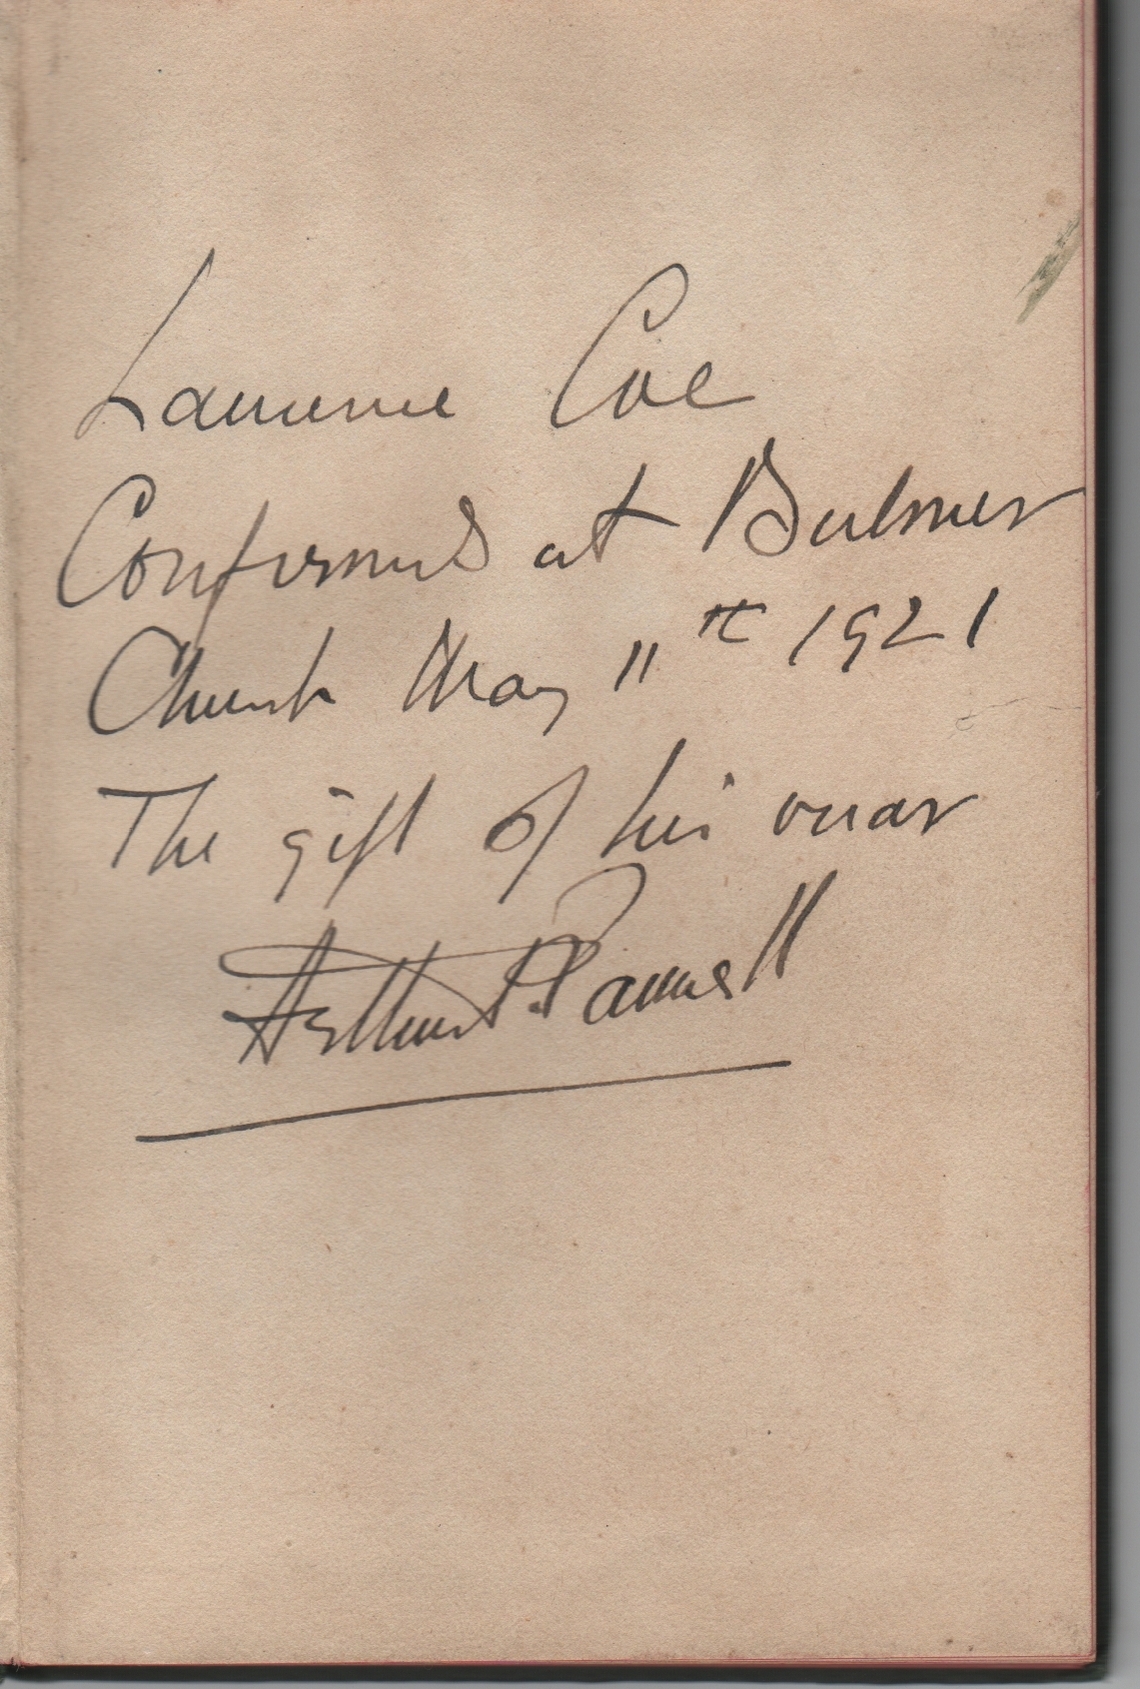 Laurence Coe
Confirmed at Bulmer
Church May 11th 1921
The gift of his vicar
Arthur P. Pannell